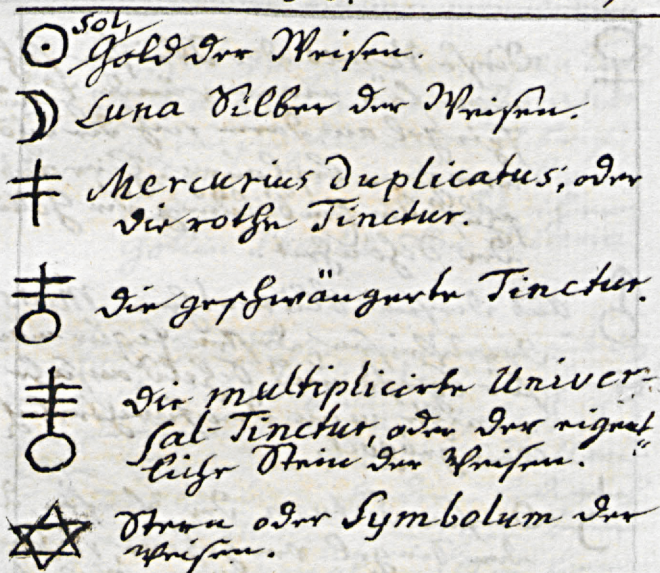 Sol,
Gold der Weisen.
Luna Silber der Weisen.
Mercurius Duplicatus, oder
die rothe Tinctur.
die geschwängerte Tinctur.
die multiplicirte Univer-
sal-Tinctur, oder der eigent
liche Stein der Weisen.
Stern oder Symbolum der
Weisen.